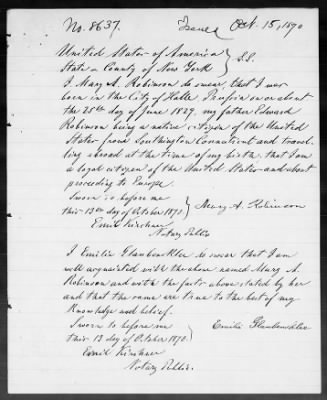 No. 8637. Issued Oct. 15, 1870
United States of America } S.S.
State & County of New York
I Mary A. Robinson do swear, that I was
born in the City of Halle, Prussia on or about
the 25th day of June 1829, my father Edward
Robinson being a native citizen of the United
States from Southington Connecticut and travel-
ling abroad at the time of my birth, that I am
a loyal citizen of the United States and about
proceeding to Europe.
Sworn to before me
this 13th day of October 1870. } Mary A. Robinson
Emil Kirchner
Notary Public
I Emilie do swear that I am
well acquainted with the above named Mary A.
Robinson and with the facts above stated by her
and that the same are true to the best of my
Knowledge and belief.
Sworn to before me
this 13 day of October 1870. } Emilie
Emil Kirchner
Notary Public.